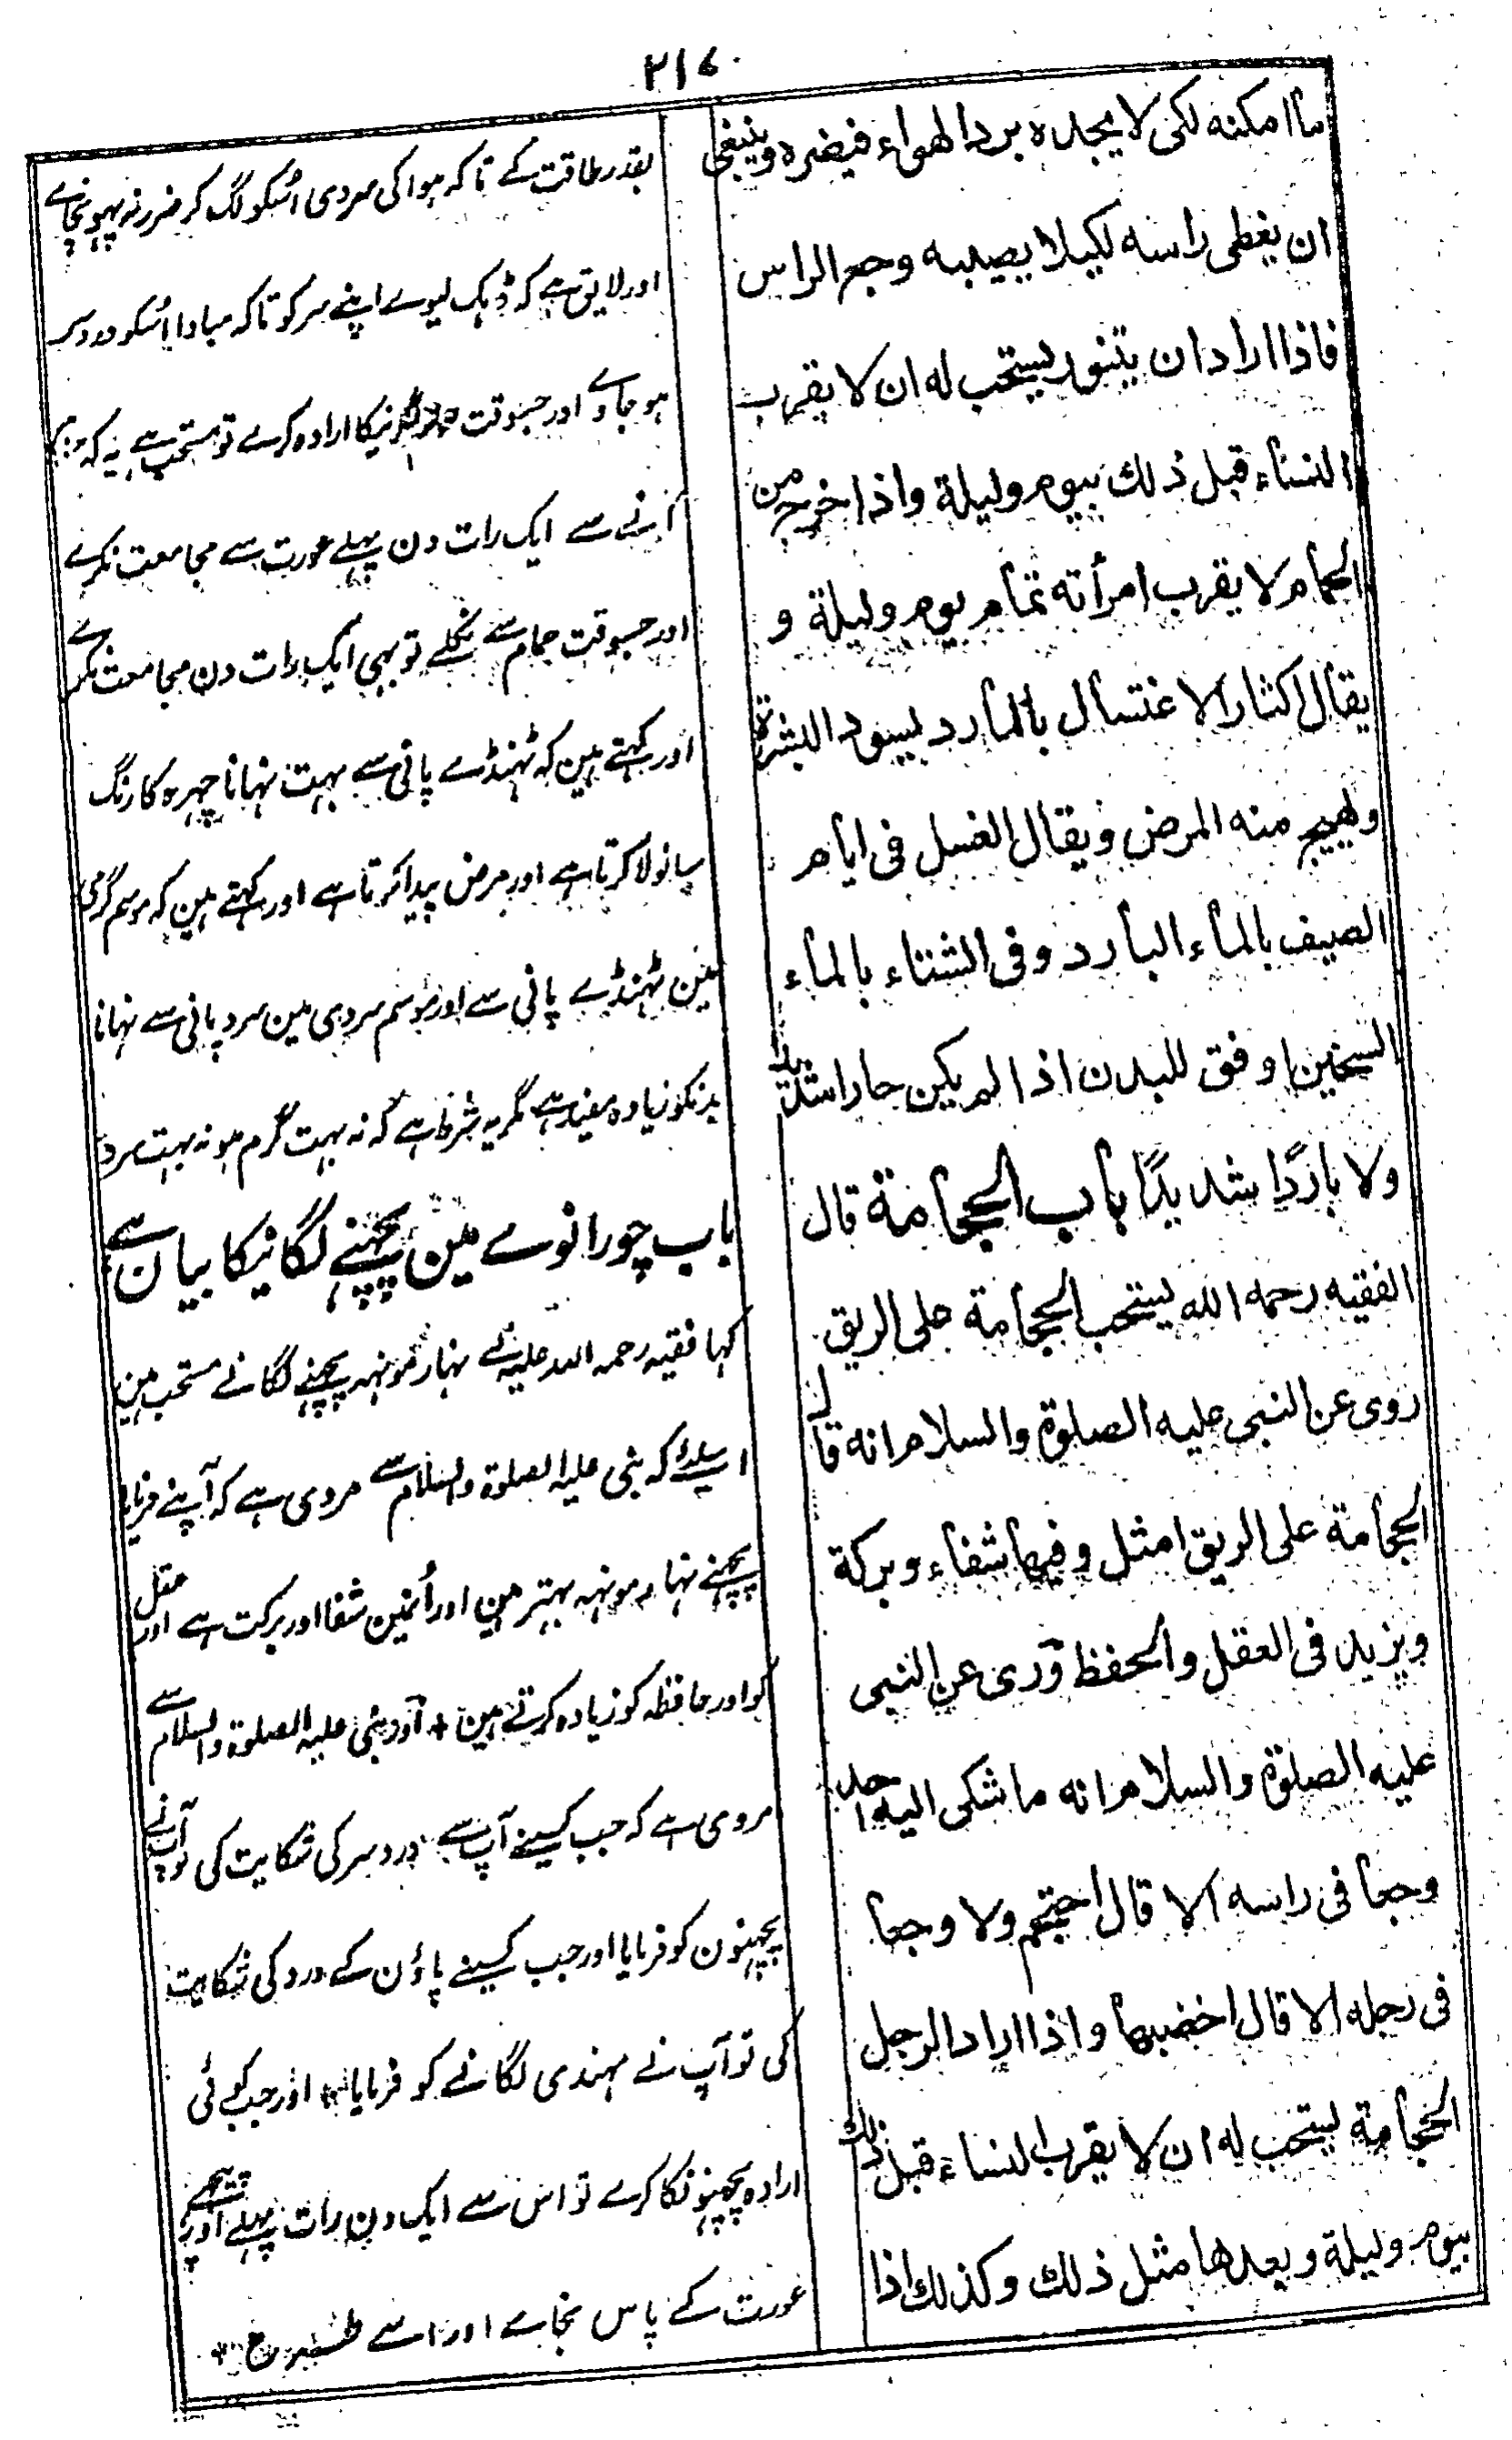 ۲۱۷
ما امکنه لکی لا یجده برد الهواء فیضره وینبغی
ان یغطی راسه لکیلا یصیبه وجع الراس
فاذا اراد ان یتنور یستحب له ان لا یقرب
النساء قبل ذلك بیوم ولیلة واذا خرج من
الحمام لا یقرب امرأته تمام یوم ولیلة و
یقال اکثار الاغتسال بالمارد یسود البشرة
ویهیج منه المرض ویقال الغسل فی ایام
الصیف بالماء البارد وفی الشتاء بالماء
السخین اوفق للبدن اذا لم یکن حارا شدیدا
ولا باردًا شدیدًا باب الحجامة قال
الفقیه رحمه الله یستحب الحجامة علی الریق
روی عن النبی علیه الصلوة والسلام انه قال
الحجامة علی الریق امثل وفیها شفاء وبرکة
ویزید فی العقل والحفظ وروی عن النبی
علیه الصلوة والسلام انه ما شکی الیه احد
وجعا فی راسه الا قال احتجم ولا وجعا
فی رجله الا قال اخضبها واذا اراد الرجل
الحجامة یستحب له ان لا یقرب النساء قبل ذلك
بیوم ولیلة وبعدها مثل ذلك وکذلك اذا
بقدر طاقت کے تاکہ ہوا کی سردی اُسکو لگ کر ضرر نہ پہونچاے
اور لایق ہے کہ ڈہک لیوے اپنے سر کو تاکہ مبادا اُسکو درد سر
ہو جاوے اور جسوقت نیکا ارادہ کرے تو مستحب ہے یہ کہ
کرنے سے ایک رات دن پہلے عورت سے مجامعت نکرے
اور جسوقت حمام سے نکلے تو بہی ایک رات دن مجامعت نکرے
اور کہتے ہین کہ ٹہنڈے پانی سے بہت نہانا چہرہ کا رنگ
سانولا کرتا ہے اور مرض پیدا کرتا ہے اور کہتے ہین کہ موسم گرمی
مین ٹہنڈے پانی سے اور موسم سردی مین سرد پانی سے نہانا
بدنکو زیادہ مفید ہے مگر یہ شرط ہے کہ نہ بہت گرم ہو نہ بہت سرد
باب چورانوے مین پچہنے لگانیکا بیان ہے
کہا فقیہ رحمہ اللہ علیہ نے نہار مونہہ پچہنے لگانے مستحب ہین
اسلئے کہ نبی علیہ الصلوۃ والسلام سے مروی ہے کہ آپنے فرمایا
پچہنے نہار مونہہ بہتر ہین اور اُنمین شفا اور برکت ہے اور عقل
کو اور حافظہ کو زیادہ کرتے ہین + اور نبی علیہ الصلوۃ والسلام سے
مروی ہے کہ جب کسینے آپ سے درد سر کی شکایت کی تو آپ نے
پچہنون کو فرمایا اور جب کسینے پاؤن کے درد کی شکایت
کی تو آپ نے مہندی لگانے کو فرمایا + اور جب کوئی
ارادہ پچہنونکا کرے تو اس سے ایک دن رات پہلے اور پیچہے
عورت کے پاس نجاے اور اسے طرح